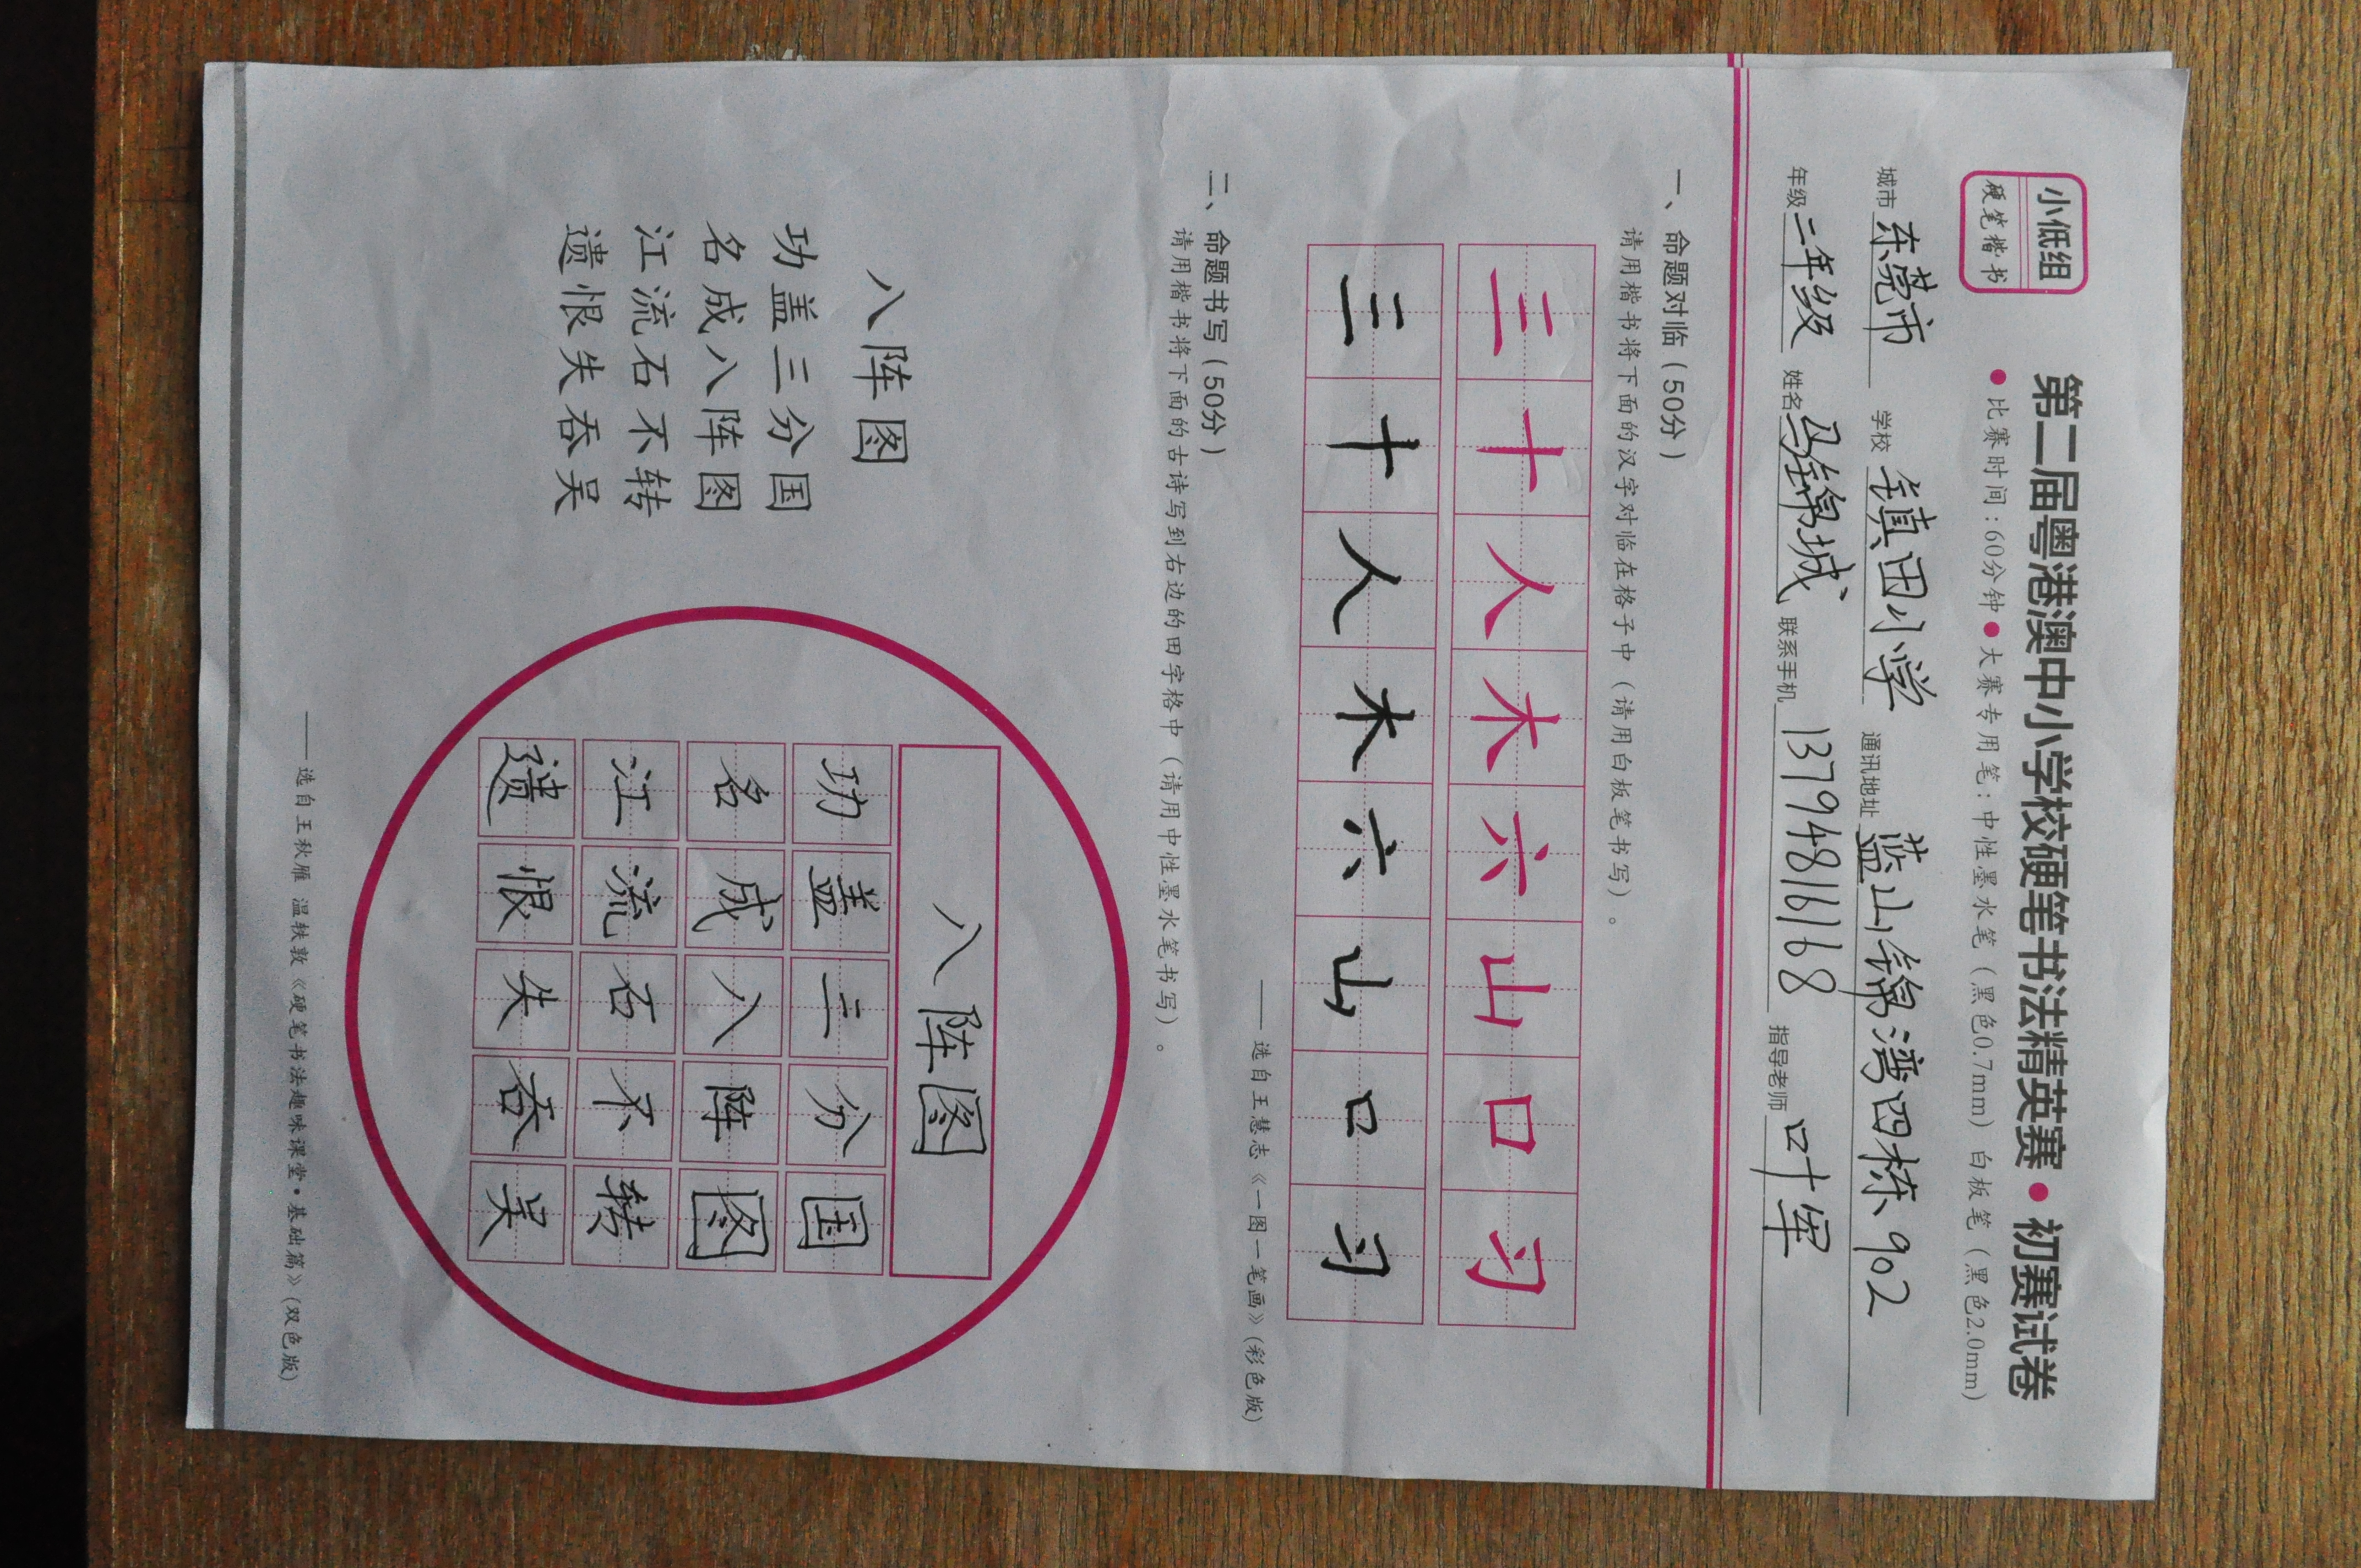 小低组
硬笔楷书
第二届粤港澳中小学校硬笔书法精英赛•初赛试卷
•比赛时间:60分钟•大赛专用笔:中性墨水笔(黑色0.7mm) 白板笔(黑色2.0mm)
城市 东莞市 学校 镇田小学 通讯地址 蓝山锦湾四栋902
年级 二年级 姓名 马锦城 联系手机 13794816168 指导老师 叶军
一、命题对临(50分)
请用楷书将下面的汉字对临在格子中(请用白板笔书写)。
三十人木六山口习
三十人木六山口习
——选自王慧志《一图一笔画》(彩色版)
二、命题书写(50分)
请用楷书将下面的古诗写到右边的田字格中(请用中性墨水笔书写)。
八阵图
功盖三分国
名成八阵图
江流石不转
遗恨失吞吴
八阵图
功盖三分国
名成八阵图
江流石不转
遗恨失吞吴
——选自王秋雁 温轶敦《硬笔书法趣味课堂•基础篇》(双色版)